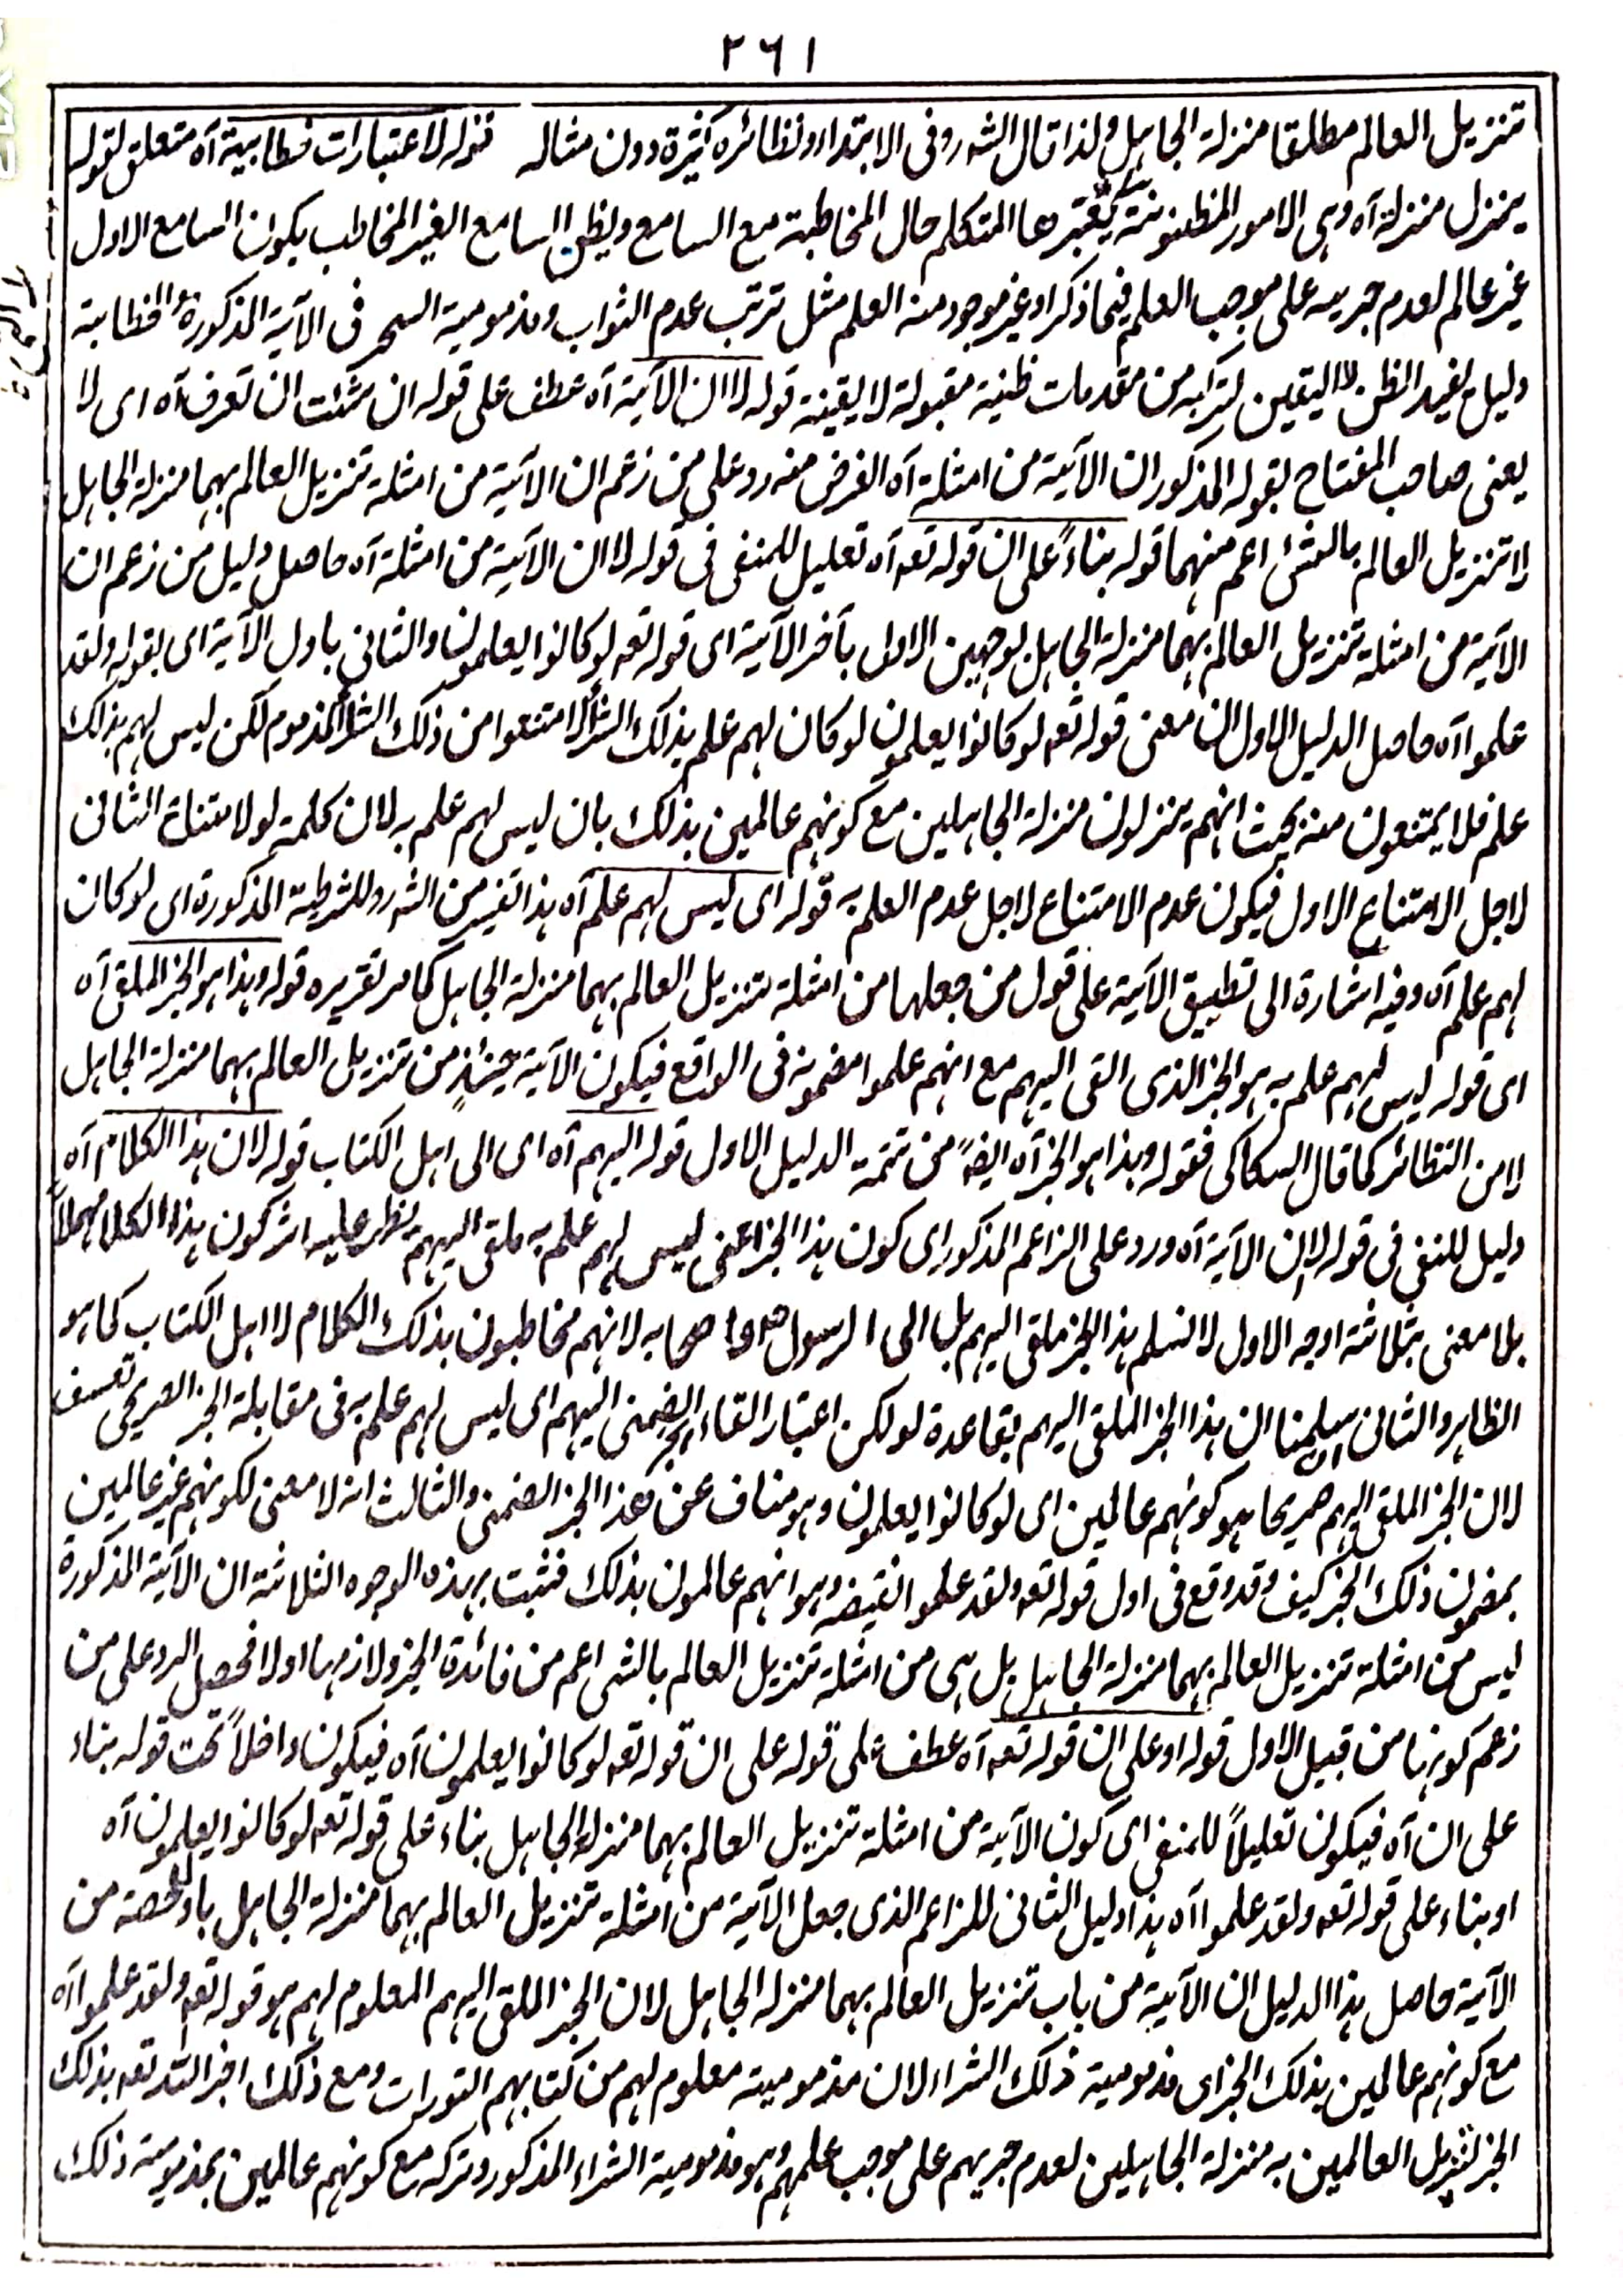 ٢٦١
تنزيل العالم مطلقا منزلة الجاهل ولذا قال الشه روفى الابتداء ونظائره كثيرة دون مثاله قوله لاعتبارات خطابية آه متعلق لقوله
ينزل منزلة آه وهى الامور المظنونة يعتبرها المتكلم حال المخاطبة مع السامع ويظن السامع الغير المخاطب بكون السامع الاول
غير عالم لعدم جريه على موجب العلم فيما ذكر او غير موجود منه العلم مثل ترتب عدم الثواب ومذمومية السحر فى الآية المذكورة والخطابية
دليل يفيد الظن لا اليقين لتركبه من مقدمات ظنية مقبولة لا يقينة قوله لا ان الآية آه عطف على قوله ان شئت ان تعرف آه اى لا
يعنى صاحب المفتاح بقوله المذكور ان الآية من امثلة آه الغرض منه رد على من زعم ان الآية من امثلة تنزيل العالم بهما منزلة الجاهل
لا تنزيل العالم بالشئ اعم منهما قوله بناءً على ان قوله تعه آه تعليل للمنفى فى قوله لا ان الآية من امثلة آه حاصل دليل من زعم ان
الآية من امثلة تنزيل العالم بهما منزلة الجاهل بوجهين الاول بآخر الآية اى قوله تعه لو كانوا يعلمون والثانى باول الآية اى بقوله ولقد
علموا آه حاصل الدليل الاول ان معنى قوله تعه لو كانوا يعلمون لو كان لهم علم بذلك الشراء لامتنعوا من ذلك الشراء المذموم لكن ليس لهم بذلك
علم فلا يمتنعون منه بحيث انهم ينزلون منزلة الجاهلين مع كونهم عالمين بذلك بان ليس لهم علم به لان كلمة لو لامتناع الثانى
لاجل الامتناع الاول فيكون عدم الامتناع لاجل عدم العلم به قوله اى ليس لهم علم آه هذا تفسير من الشه ر للشرطية المذكورة اى لو كان
لهم علم آه وفيه اشارة الى تطبيق الآية على قول من جعلها من امثلة تنزيل العالم بهما منزلة الجاهل كما مر تقريره قوله وهذا هو الخبر الملقى آه
اى قوله ليس لهم علم به هو الخبر الذى القى اليهم مع انهم علموا مضمونه فى الواقع فيكون الآية حينئذٍ من تنزيل العالم بهما منزلة الجاهل
لا من النظائر كما قال السكاكى فقوله وهذا هو الخبر آه ايضً من تتمة الدليل الاول قوله اليهم آه اى الى اهل الكتاب قوله لان هذا الكلام آه
دليل للنفى فى قوله لا ان الآية آه ورد على الزاعم المذكور اى كون هذا الخبر اعنى ليس لهم علم به ملقى اليهم يظهر عليه اثر كون هذا الكلام مهملاً
بلا معنى بثلاثة اوجه الاول لا نسلم هذا الخبر ملقى اليهم بل الى الرسول صه واصحابه لانهم مخاطبون بذلك الكلام لا اهل الكتاب كما هو
الظاهر والثانى سلمنا ان هذا الخبر الملقى اليهم بقاعدة لو لكن اعتبار القاء الخبر الضمنى اليهم اى ليس لهم علم به فى مقابلة الخبر الصريحى تعسف
لان الخبر الملقى اليهم صريحا هو كونهم عالمين اى لو كانوا يعلمون وهو مناف عن هذا الخبر الضمنى والثالث انه لا معنى لكونهم غير عالمين
بمضمون ذلك الخبر كيف وقد وقع فى اول قوله تعه ولقد علموا نقيضه وهو انهم عالمون بذلك فثبت بهذه الوجوه الثلاثة ان الآية المذكورة
ليس من امثلة تنزيل العالم بهما منزلة الجاهل بل هى من امثلة تنزيل العالم بالشى اعم من فائدة الخبر ولازمها اولا فحصل الرد على من
زعم كونها من قبيل الاول قوله او على ان قوله تعه آه عطف على قوله على ان قوله تعه لو كانوا يعلمون آه فيكون داخلاً تحت قوله بناء
على ان آه فيكون تعليلاً للمنفى اى كون الآية من امثلة تنزيل العالم بهما منزلة الجاهل بناء على قوله تعه لو كانوا يعلمون آه
او بناء على قوله تعه ولقد علموا آه هذا دليل الثانى للزاعم الذى جعل الآية من امثلة تنزيل العالم بهما منزلة الجاهل باول حصة من
الآية حاصل هذا الدليل ان الآية من باب تنزيل العالم بهما منزلة الجاهل لان الخبر الملقى اليهم المعلوم لهم هو قوله تعه ولقد علموا آه
مع كونهم عالمين بذلك الخبر اى مذمومية ذلك الشراء لان مذمومية معلوم لهم من كتابهم التورات ومع ذلك اخبر الله تعه بذلك
الخبر لتنزيل العالمين به منزلة الجاهلين لعدم جريهم على موجب علمهم وهو مذمومية الشراء المذكور وتركه مع كونهم عالمين بمذمومية ذلك